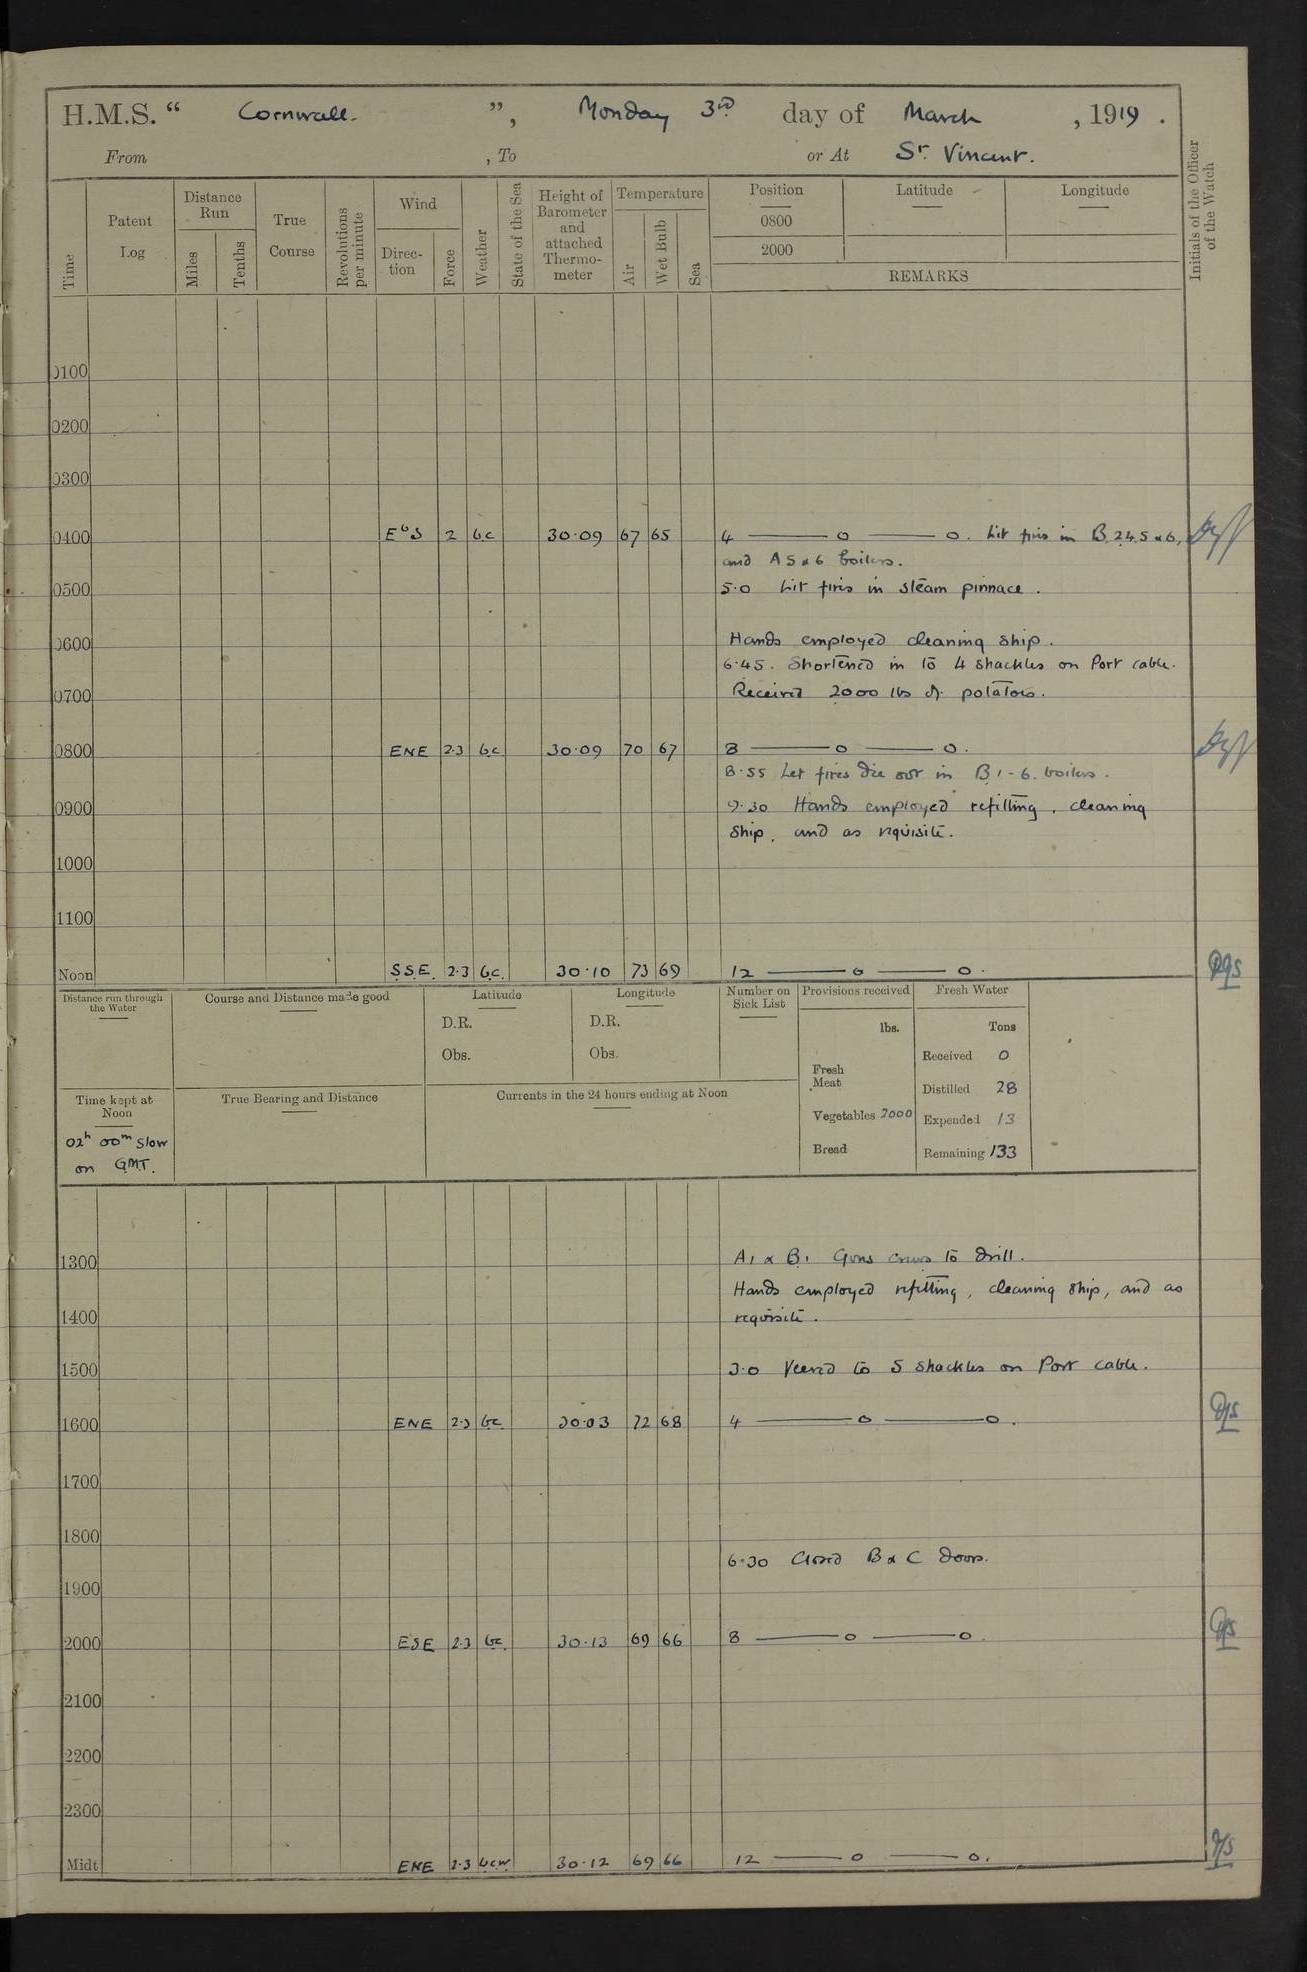 H.M.S. " Cornwall. ", Monday 3rd day of March, 1919.
From , To or At St. Vincent.
Time
Patent Log
Distance Run
Miles
Tenths
True Course
Revolutions per minute
Wind
Direc-tion
Force
Weather
State of the Sea
Height of Barometer and attached Thermo-meter
Temperature
Air
Wet Bulb
Sea
Position
Latitude
Longitude
0800
2000
REMARKS
Initials of the Officer of the Watch
0100
0200
0300
0400 EbS 2 bc 30.09 67 65 4 —— o —— o. Lit fires in B.2.4.5 & 6,
and A 5 & 6 boilers.
0500 5.0 Lit fires in steam pinnace.
0600 Hands employed cleaning ship.
6.45. Shortened in to 4 shackles on Port cable.
0700 Received 2000 lbs of potatoes.
0800 ENE 2.3 bc 30.09 70 67 8 —— o —— o.
8.55 Let fires die out in B 1-6. boilers.
0900 9.30 Hands employed refitting, cleaning
ship, and as requisite.
1000
1100
Noon S.S.E. 2.3 bc. 30.10 73 69 12 —— o —— o.
Distance run through the Water
Course and Distance made good
Latitude
D.R.
Obs.
Longitude
D.R.
Obs.
Number on Sick List
Provisions received
lbs.
Fresh Meat
Vegetables 2000
Bread
Fresh Water
Tons
Received 0
Distilled 28
Expended 13
Remaining 133
Time kept at Noon
02h 00m slow
on GMT.
True Bearing and Distance
Currents in the 24 hours ending at Noon
1300 A1 & B1 Guns crews to drill.
Hands employed refitting, cleaning ship, and as
1400 requisite.
1500 3.0 Veered to 5 shackles on Port cable.
1600 ENE 2.3 bc. 30.03 72 68 4 —— o —— o.
1700
1800
6.30 Closed B & C doors.
1900
2000 ESE 2.3 bc. 30.13 69 66 8 —— o —— o.
2100
2200
2300
Midt ENE 2.3 bcw. 30.12 69 66 12 —— o —— o.